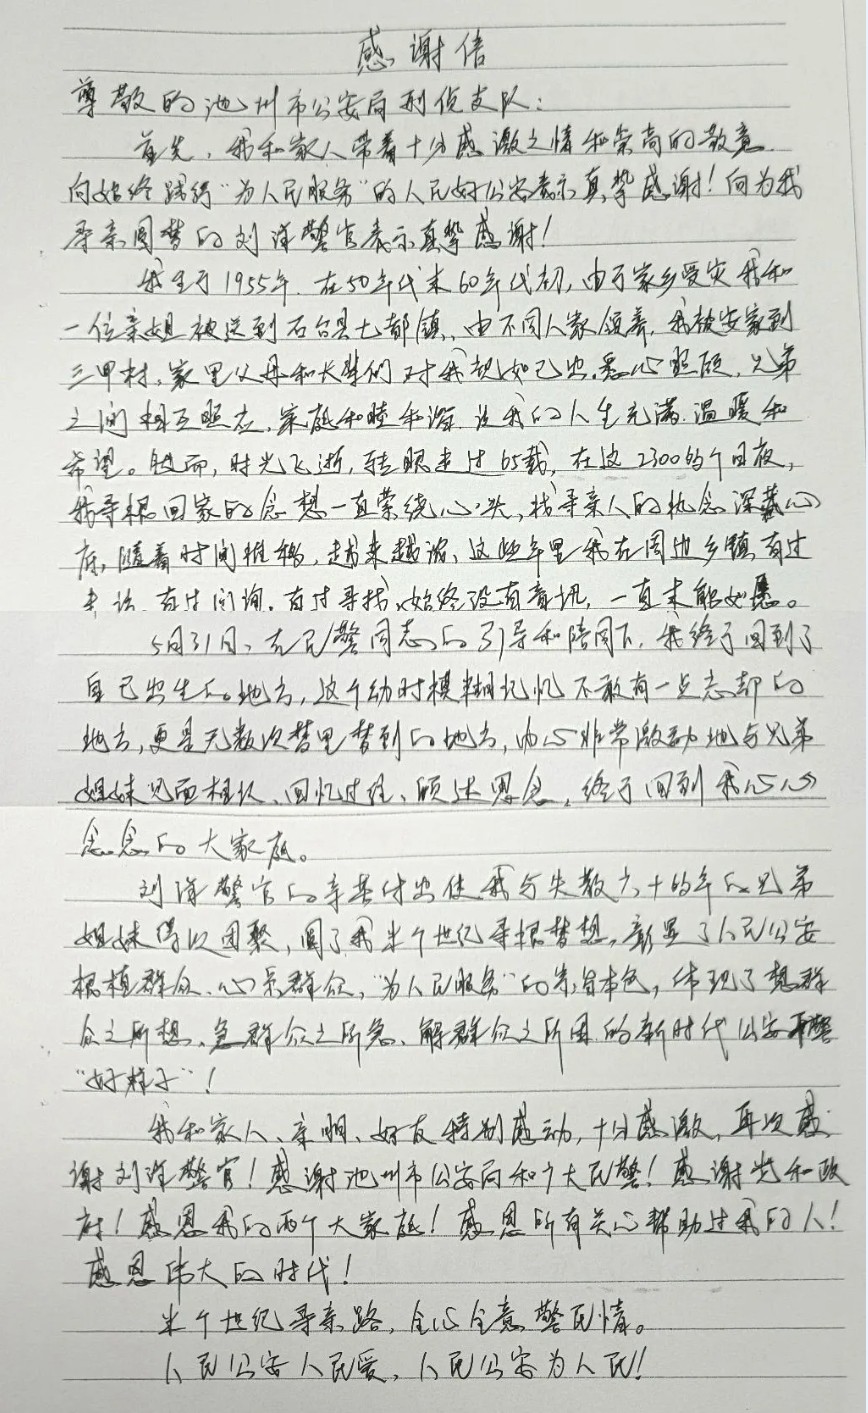 感谢信
尊敬的池州市公安局刑侦支队:
首先,我和家人带着十分感激之情和崇高的敬意.
向始终践行"为人民服务"的人民好公安表示真挚感谢!向为我
寻亲圆梦的刘洋警官表示真挚感谢!
我生于1955年.在50年代末60年代初,由于家乡受灾我和
一位亲姐被送到石台县七都镇,由不同人家领养.我被安家到
三甲村,家里父母和长辈们对我视如己出.悉心照顾,兄弟
之间相互照应,家庭和睦和谐.让我的人生充满温暖和
希望。然而,时光飞逝,转眼走过65载,在这2300的个日夜,
我寻根回家的念想一直萦绕心头,找寻亲人的执念深藏心
底,随着时间推移,越来越浓、这些年里我在周边乡镇有过
走访.有过问询.有过寻找,始终没有音讯,一直未能如愿。
5月31日、在民警同志的引导和陪同下,我终于回到了
自己出生的地方,这个幼时模糊记忆不敢有一点忘却的
地方,更是无数次梦里梦到的地方,内心非常激动地与兄弟
姐妹见面相认、回忆过往、倾述思念,终于回到我心心
念念的大家庭。
刘洋警官的辛苦付出使我与失散六十的年的兄弟
姐妹得以团聚,圆了我半个世纪寻根梦想,彰显了人民公安
根植群众、心系群众,"为人民服务"的宗旨本色,体现了想群
众之所想、急群众之所急、解群众之所困的新时代公安
"好样子"!
我和家人、亲朋、好友特别感动,十分感激,再次感
谢刘洋警官!感谢池州市公安局和广大民警!感谢党和政
府!感恩我的两个大家庭!感恩所有关心帮助过我的人!
感恩伟大的时代!
半个世纪寻亲路,全心全意警民情。
人民公安人民爱,人民公安为人民!